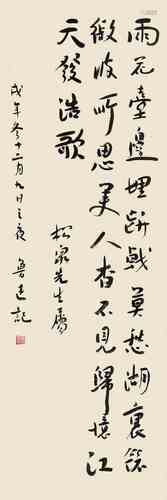 雨花臺邊埋斷戟莫愁湖裏餘
微波所思美人杳不見歸憶江
天發浩歌
松泉先生屬
年十二月九日之夜 魯迅記